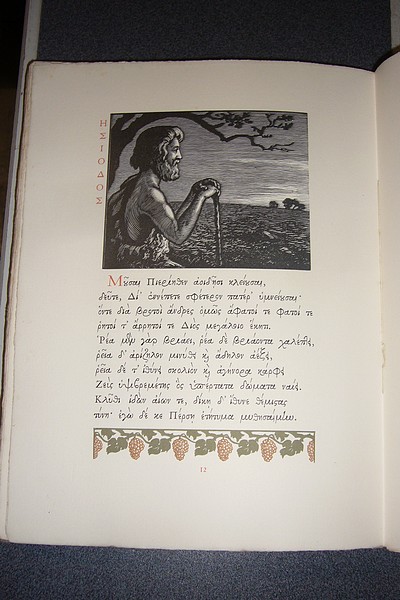 ΗΣΙΟΔΟΣ
Μοῦσαι Πιερίηθεν ἀοιδῇσι κλείουσαι,
δεῦτε, Δί' ἐννέπετε σφέτερον πατέρ' ὑμνείουσαι·
ὅντε διὰ βροτοὶ ἄνδρες ὁμῶς ἄφατοί τε φατοί τε
ῥητοί τ' ἄρρητοί τε Διὸς μεγάλοιο ἕκητι.
Ῥέα μὲν γὰρ βριάει, ῥέα δὲ βριάοντα χαλέπτει,
ῥεῖα δ' ἀρίζηλον μινύθει καὶ ἄδηλον ἀέξει,
ῥεῖα δέ τ' ἰθύνει σκολιὸν καὶ ἀγήνορα κάρφει
Ζεὺς ὑψιβρεμέτης ὃς ὑπέρτατα δώματα ναίει.
Κλῦθι ἰδὼν ἀίων τε, δίκῃ δ' ἴθυνε θέμιστας
τύνη· ἐγὼ δέ κε Πέρσῃ ἐτήτυμα μυθησαίμην.
12